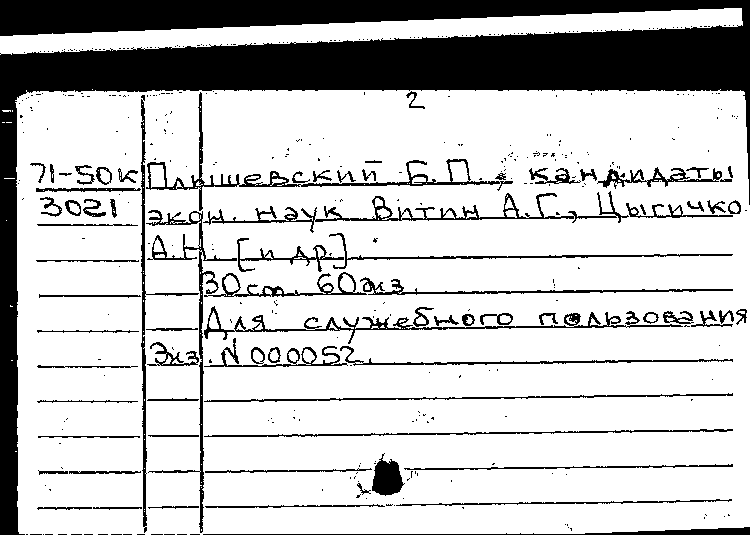 2
71-50к Плышевский Б.П., кандидаты
3021 экон. наук Витин А.Г., Цыгичко
А.Н. [и др.].
30 см. 60 экз.
Для служебного пользования
Экз. N 000052.